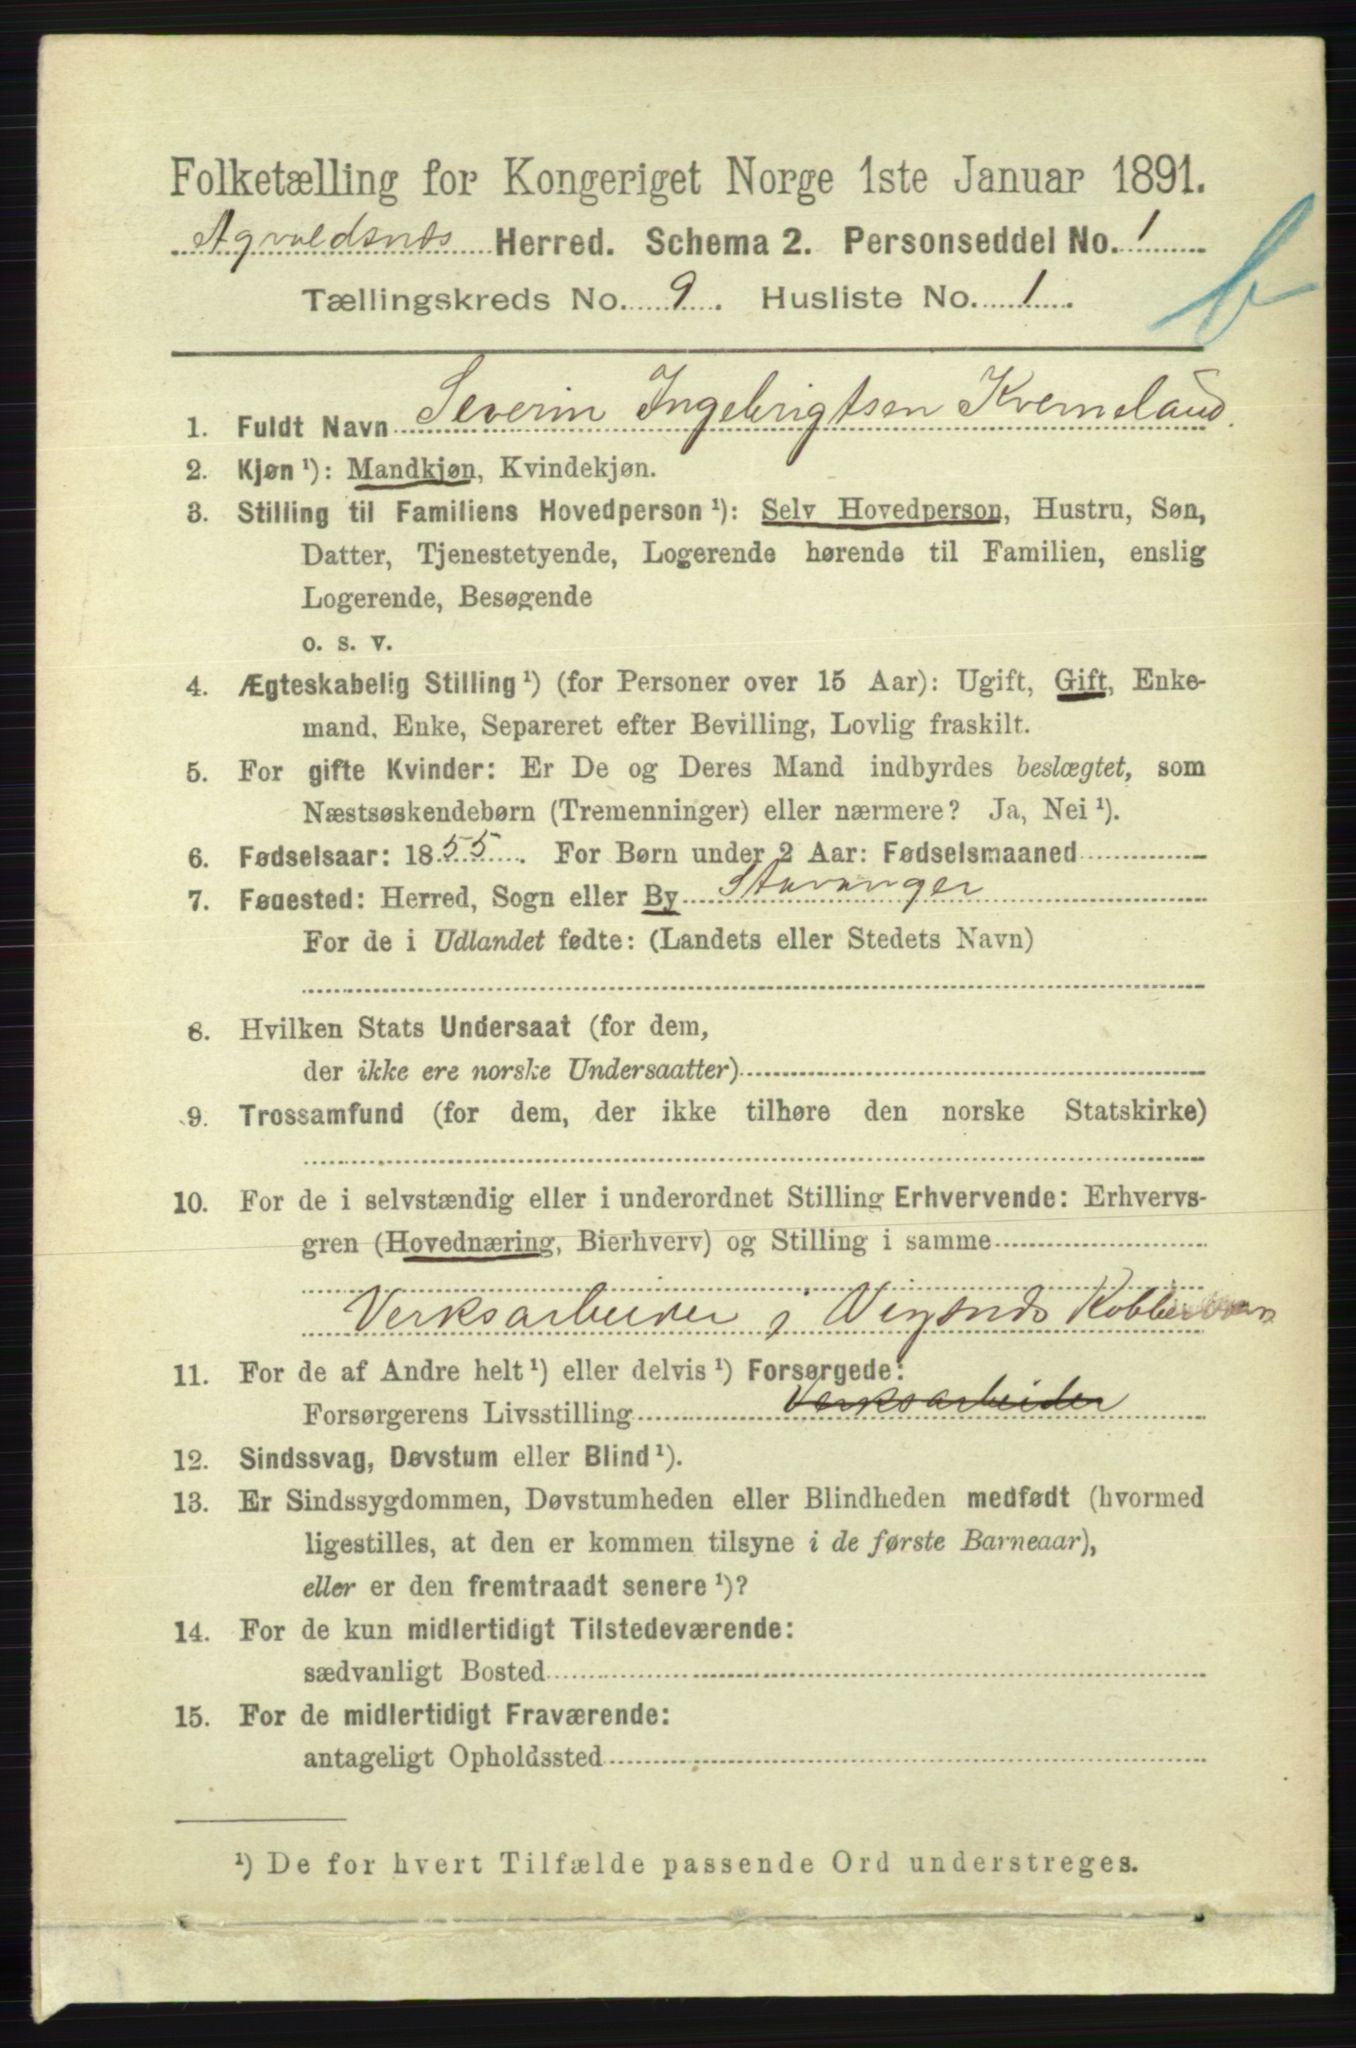 Folketælling for Kongeriget Norge 1ste Januar 1891.
Agvaldsnæs Herred. Schema 2. Personseddel No. 1
Tællingskreds No. 9. Husliste No. 1.
b
1. Fuldt Navn Severin Ingebrigtsen Kverneland.
2. Kjøn ¹): Mandkjøn, Kvindekjøn.
3. Stilling til Familiens Hovedperson ¹): Selv Hovedperson, Hustru, Søn,
Datter, Tjenestetyende, Logerende hørende til Familien, enslig
Logerende, Besøgende
o. s. v.
4. Ægteskabelig Stilling ¹) (for Personer over 15 Aar): Ugift, Gift, Enke-
mand, Enke, Separeret efter Bevilling, Lovlig fraskilt.
5. For gifte Kvinder: Er De og Deres Mand indbyrdes beslægtet, som
Næstsøskendebørn (Tremenninger) eller nærmere? Ja, Nei ¹).
6. Fødselsaar: 1855. For Børn under 2 Aar: Fødselsmaaned
7. Fødested: Herred, Sogn eller By Stavanger
For de i Udlandet fødte: (Landets eller Stedets Navn)
8. Hvilken Stats Undersaat (for dem,
der ikke ere norske Undersaatter)
9. Trossamfund (for dem, der ikke tilhøre den norske Statskirke)
10. For de i selvstændig eller i underordnet Stilling Erhvervende: Erhvervs-
gren (Hovednæring, Bierhverv) og Stilling i samme
Verksarbeider i Vigsnds
11. For de af Andre helt ¹) eller delvis ¹) Forsørgede:
Forsørgerens Livsstilling Verksarbeider
12. Sindssvag, Døvstum eller Blind ¹).
13. Er Sindssygdommen, Døvstumheden eller Blindheden medfødt (hvormed
ligestilles, at den er kommen tilsyne i de første Barneaar),
eller er den fremtraadt senere ¹)?
14. For de kun midlertidigt Tilstedeværende:
sædvanligt Bosted
15. For de midlertidigt Fraværende:
antageligt Opholdssted
¹) De for hvert Tilfælde passende Ord understreges.